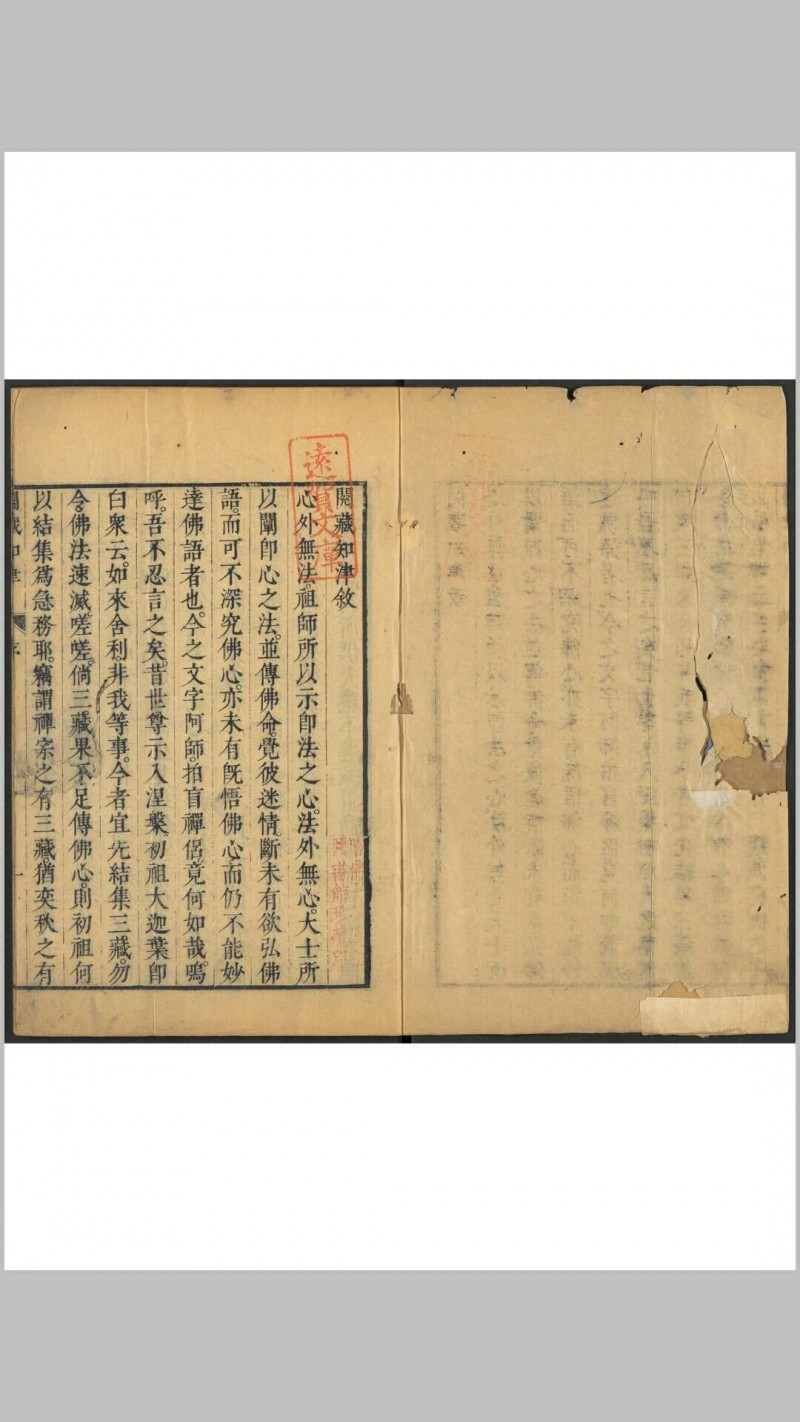 閱藏知津敘
心外無法。祖師所以示即法之心。法外無心。大士所
以闡即心之法。並傳佛命。覺彼迷情。斷未有欲弘佛
語。而可不深究佛心。亦未有既悟佛心而仍不能妙
達佛語者也。今之文字阿師。拍盲禪侶。竟何如哉。嗚
呼。吾不忍言之矣。昔世尊示入涅槃。初祖大迦葉即
白衆云。如來舍利。非我等事。今者宜先結集三藏。勿
令佛法速滅。嗟嗟。倘三藏果不足傳佛心。則初祖何
以結集爲急務耶。竊謂禪宗之有三藏。猶奕秋之有
閱藏知津 序 一
遠 文庫